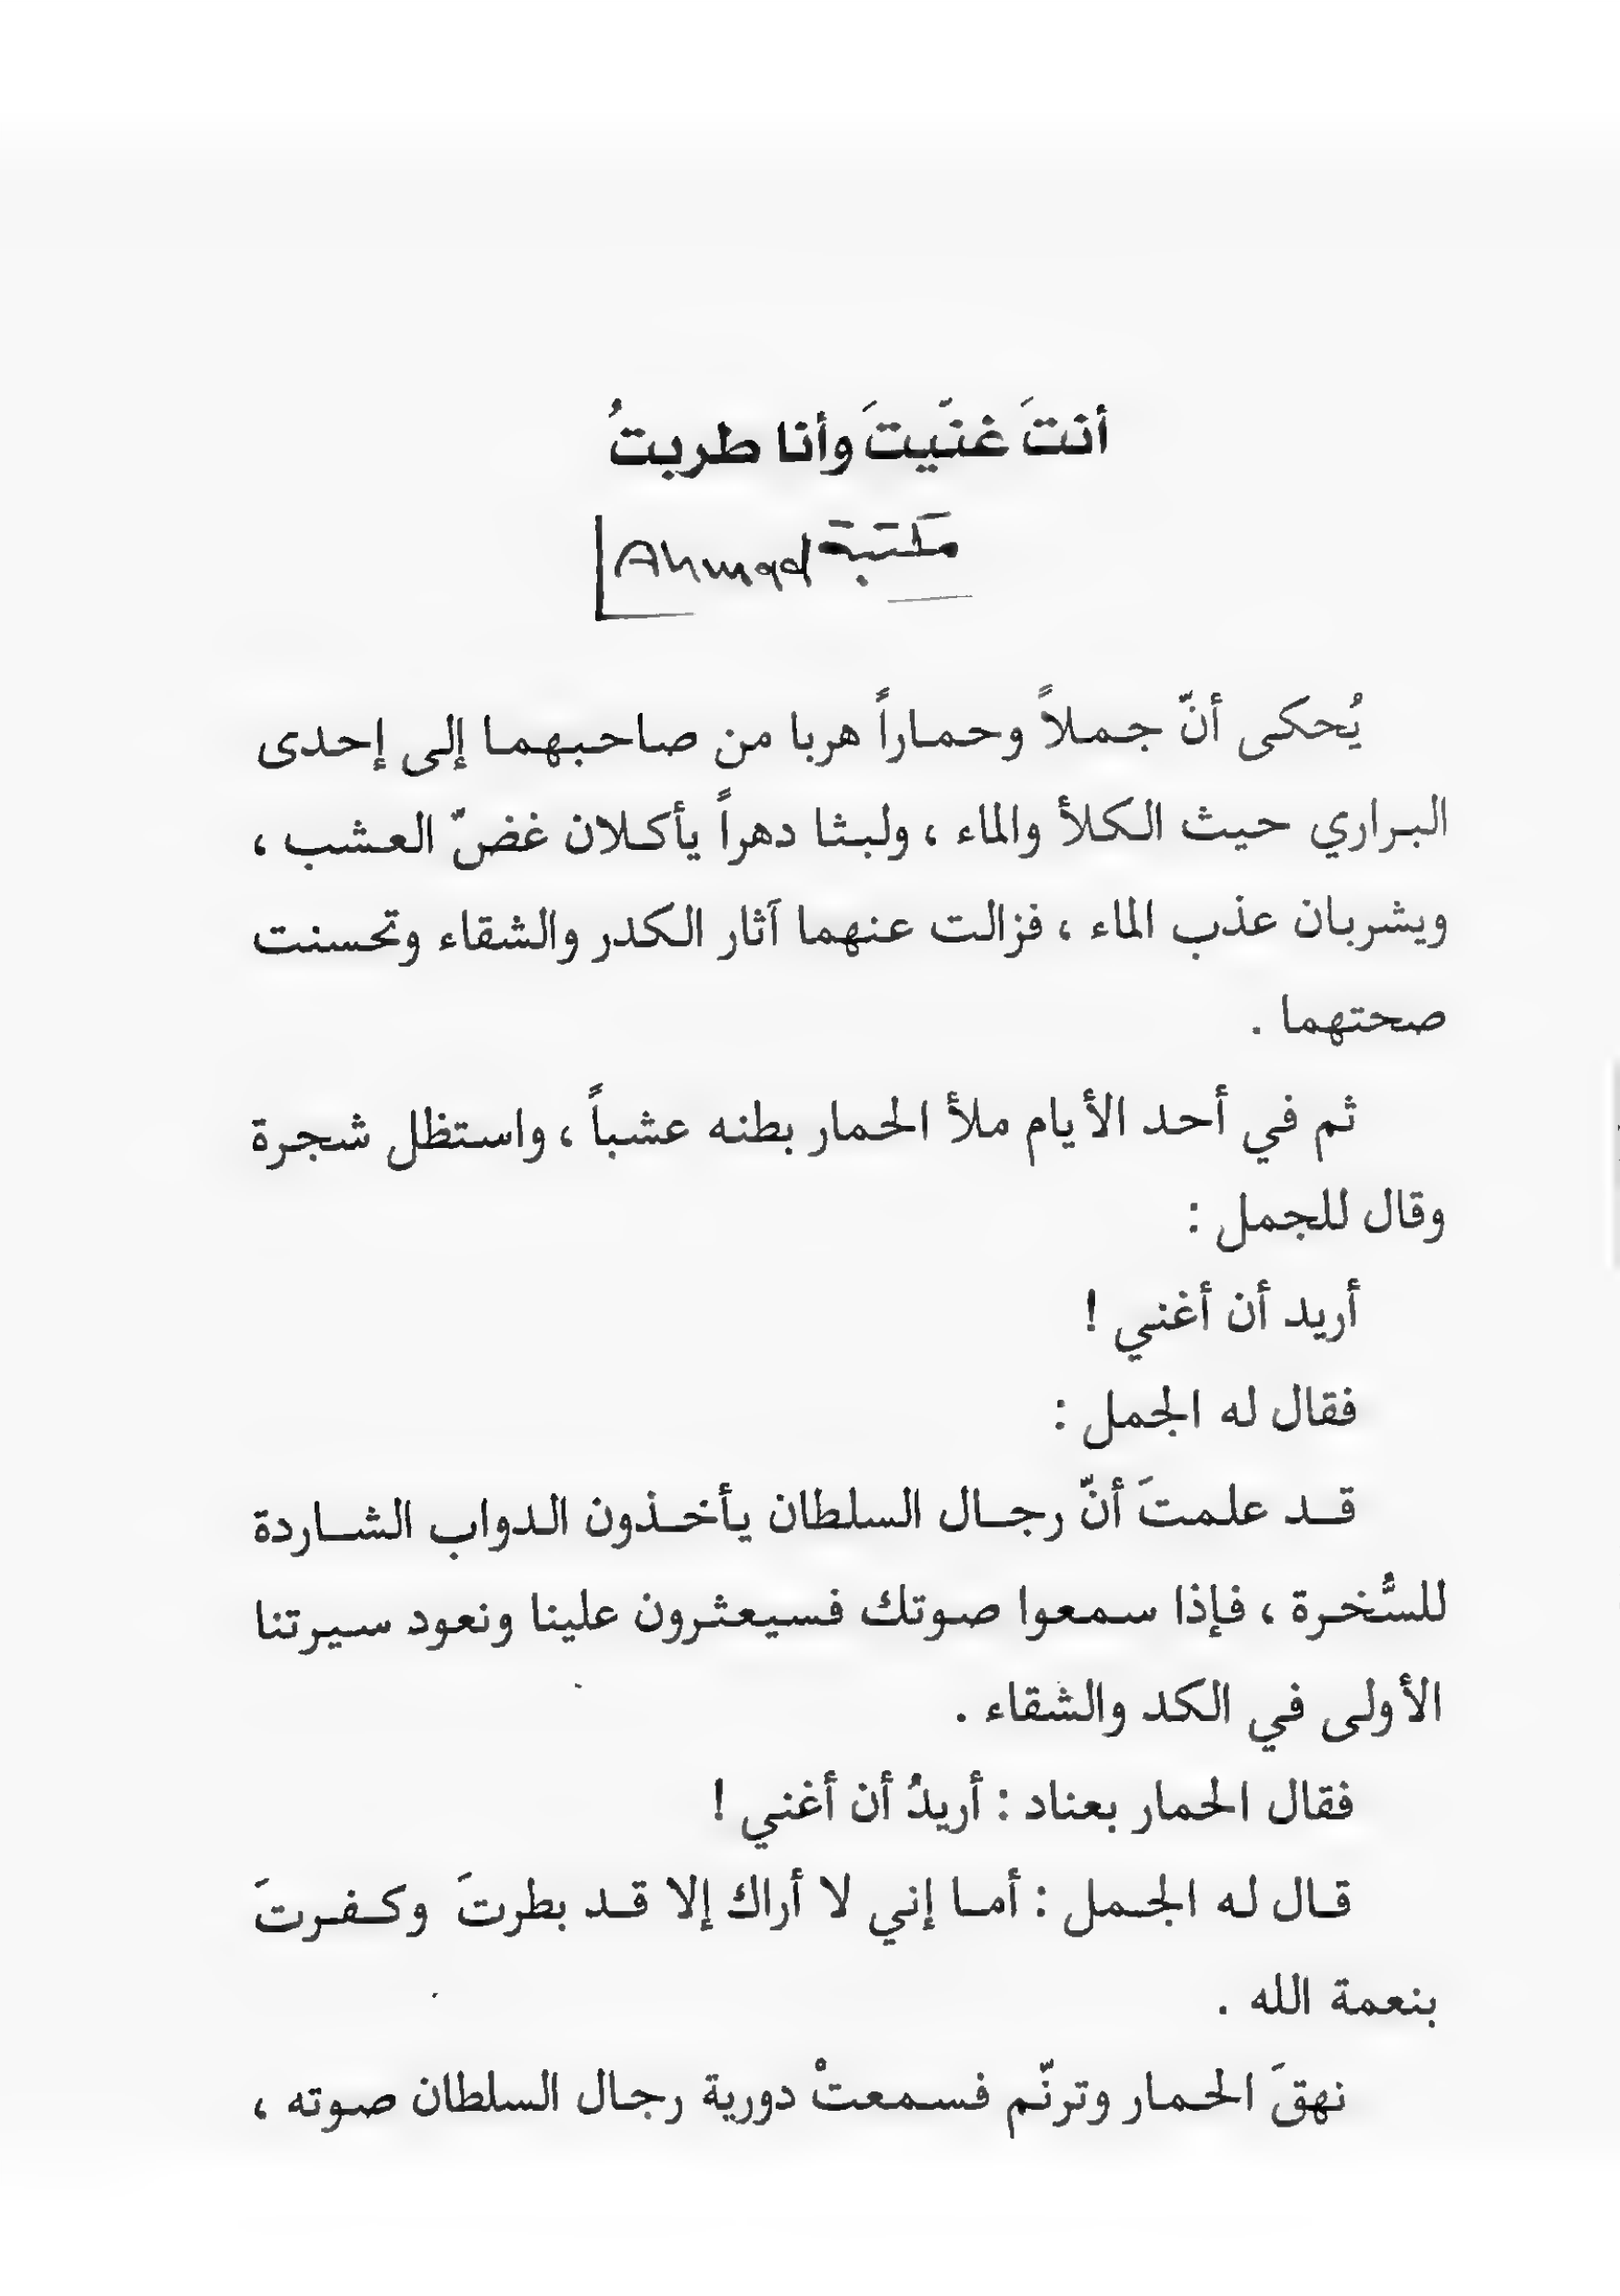 أنتَ غنّيتَ وأنا طربتُ
مكتبة Ahmad
يُحكى أنّ جملاً وحماراً هربا من صاحبهما إلى إحدى
البراري حيث الكلأ والماء ، ولبثا دهراً يأكلان غضّ العشب ،
ويشربان عذب الماء ، فزالت عنهما آثار الكدر والشقاء وتحسنت
صحتهما .
ثم في أحد الأيام ملأ الحمار بطنه عشباً ، واستظل شجرة
وقال للجمل :
أريد أن أغني !
فقال له الجمل :
قد علمتَ أنّ رجال السلطان يأخذون الدواب الشاردة
للسُّخرة ، فإذا سمعوا صوتك فسيعثرون علينا ونعود سيرتنا
الأولى في الكد والشقاء .
فقال الحمار بعناد : أريدُ أن أغني !
قال له الجمل : أما إني لا أراك إلا قد بطرتَ وكفرتَ
بنعمة الله .
نهقَ الحمار وترنّم فسمعتْ دورية رجال السلطان صوته ،